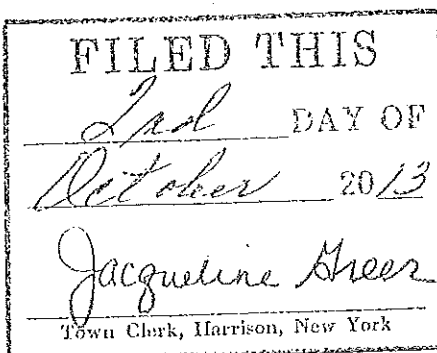 FILED THIS
2nd DAY OF
October 2013
Jacqueline Greer
Town Clerk, Harrison, New York